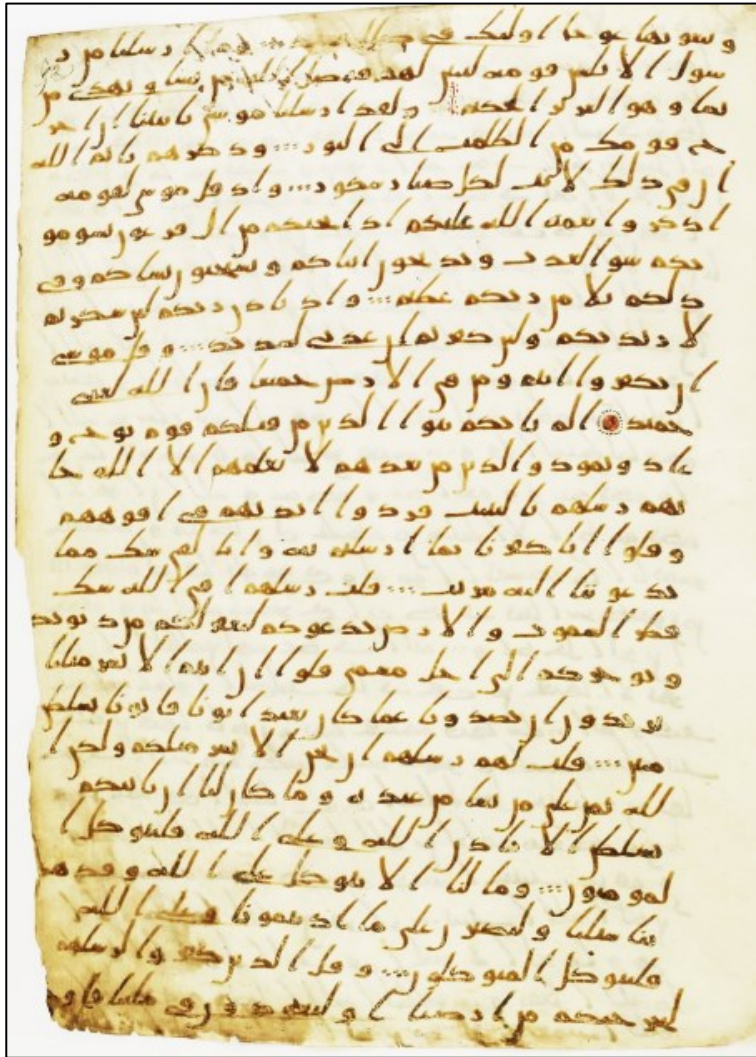 ويبغونها عوجا اوليك في ضلل بعيد وما ارسلنا من ر
سول الا بلسن قومه ليبين لهم فيضل الله من يشا ويهدي من
يشا وهو العزيز الحكيم ولقد ارسلنا موسي بايتنا ان اخر
ج قومك من الظلمت الي النور وذكرهم بايم الله
ان في ذلك لايت لكل صبار شكور واذ قل موسي لقومه
اذكروا نعمة الله عليكم اذ انجيكم من ال فرعون يسومو
نكم سو العذب ويذبحون ابناكم ويستحيون نساكم وفي
ذلكم بلا من ربكم عظيم واذ تاذن ربكم لين شكرتم
لازيدنكم ولين كفرتم ان عذبي لشديد وقل موسي
ان تكفروا انتم ومن في الارض جميعا فان الله لغني
حميد الم ياتكم نبوا الذين من قبلكم قوم نوح و
عاد وثمود والذين من بعدهم لا يعلمهم الا الله جا
تهم رسلهم بالبينت فردوا ايديهم في افوههم
وقلوا انا كفرنا بما ارسلتم به وانا لفي شك مما
تدعوننا اليه مريب قلت رسلهم افي الله شك
فطر السموت والارض يدعوكم ليغفر لكم من ذنوبكم
ويوخركم الي اجل مسمي قلوا ان انتم الا بشر مثلنا
تريدون ان تصدونا عما كان يعبد ابونا فاتونا بسلطن
مبين قلت لهم رسلهم ان نحن الا بشر مثلكم ولكن ا
لله يمن علي من يشا من عبده وما كان لنا ان ناتيكم
بسلطن الا باذن الله وعلي الله فليتوكل ا
لمومنون وما لنا الا نتوكل علي الله وقد هد
ينا سبلنا ولنصبرن علي ما اذيتمونا وعلي الله
فليتوكل المتوكلون وقل الذين كفروا لرسلهم
لنخرجنكم من ارضنا او لتعودن في ملتنا فاو